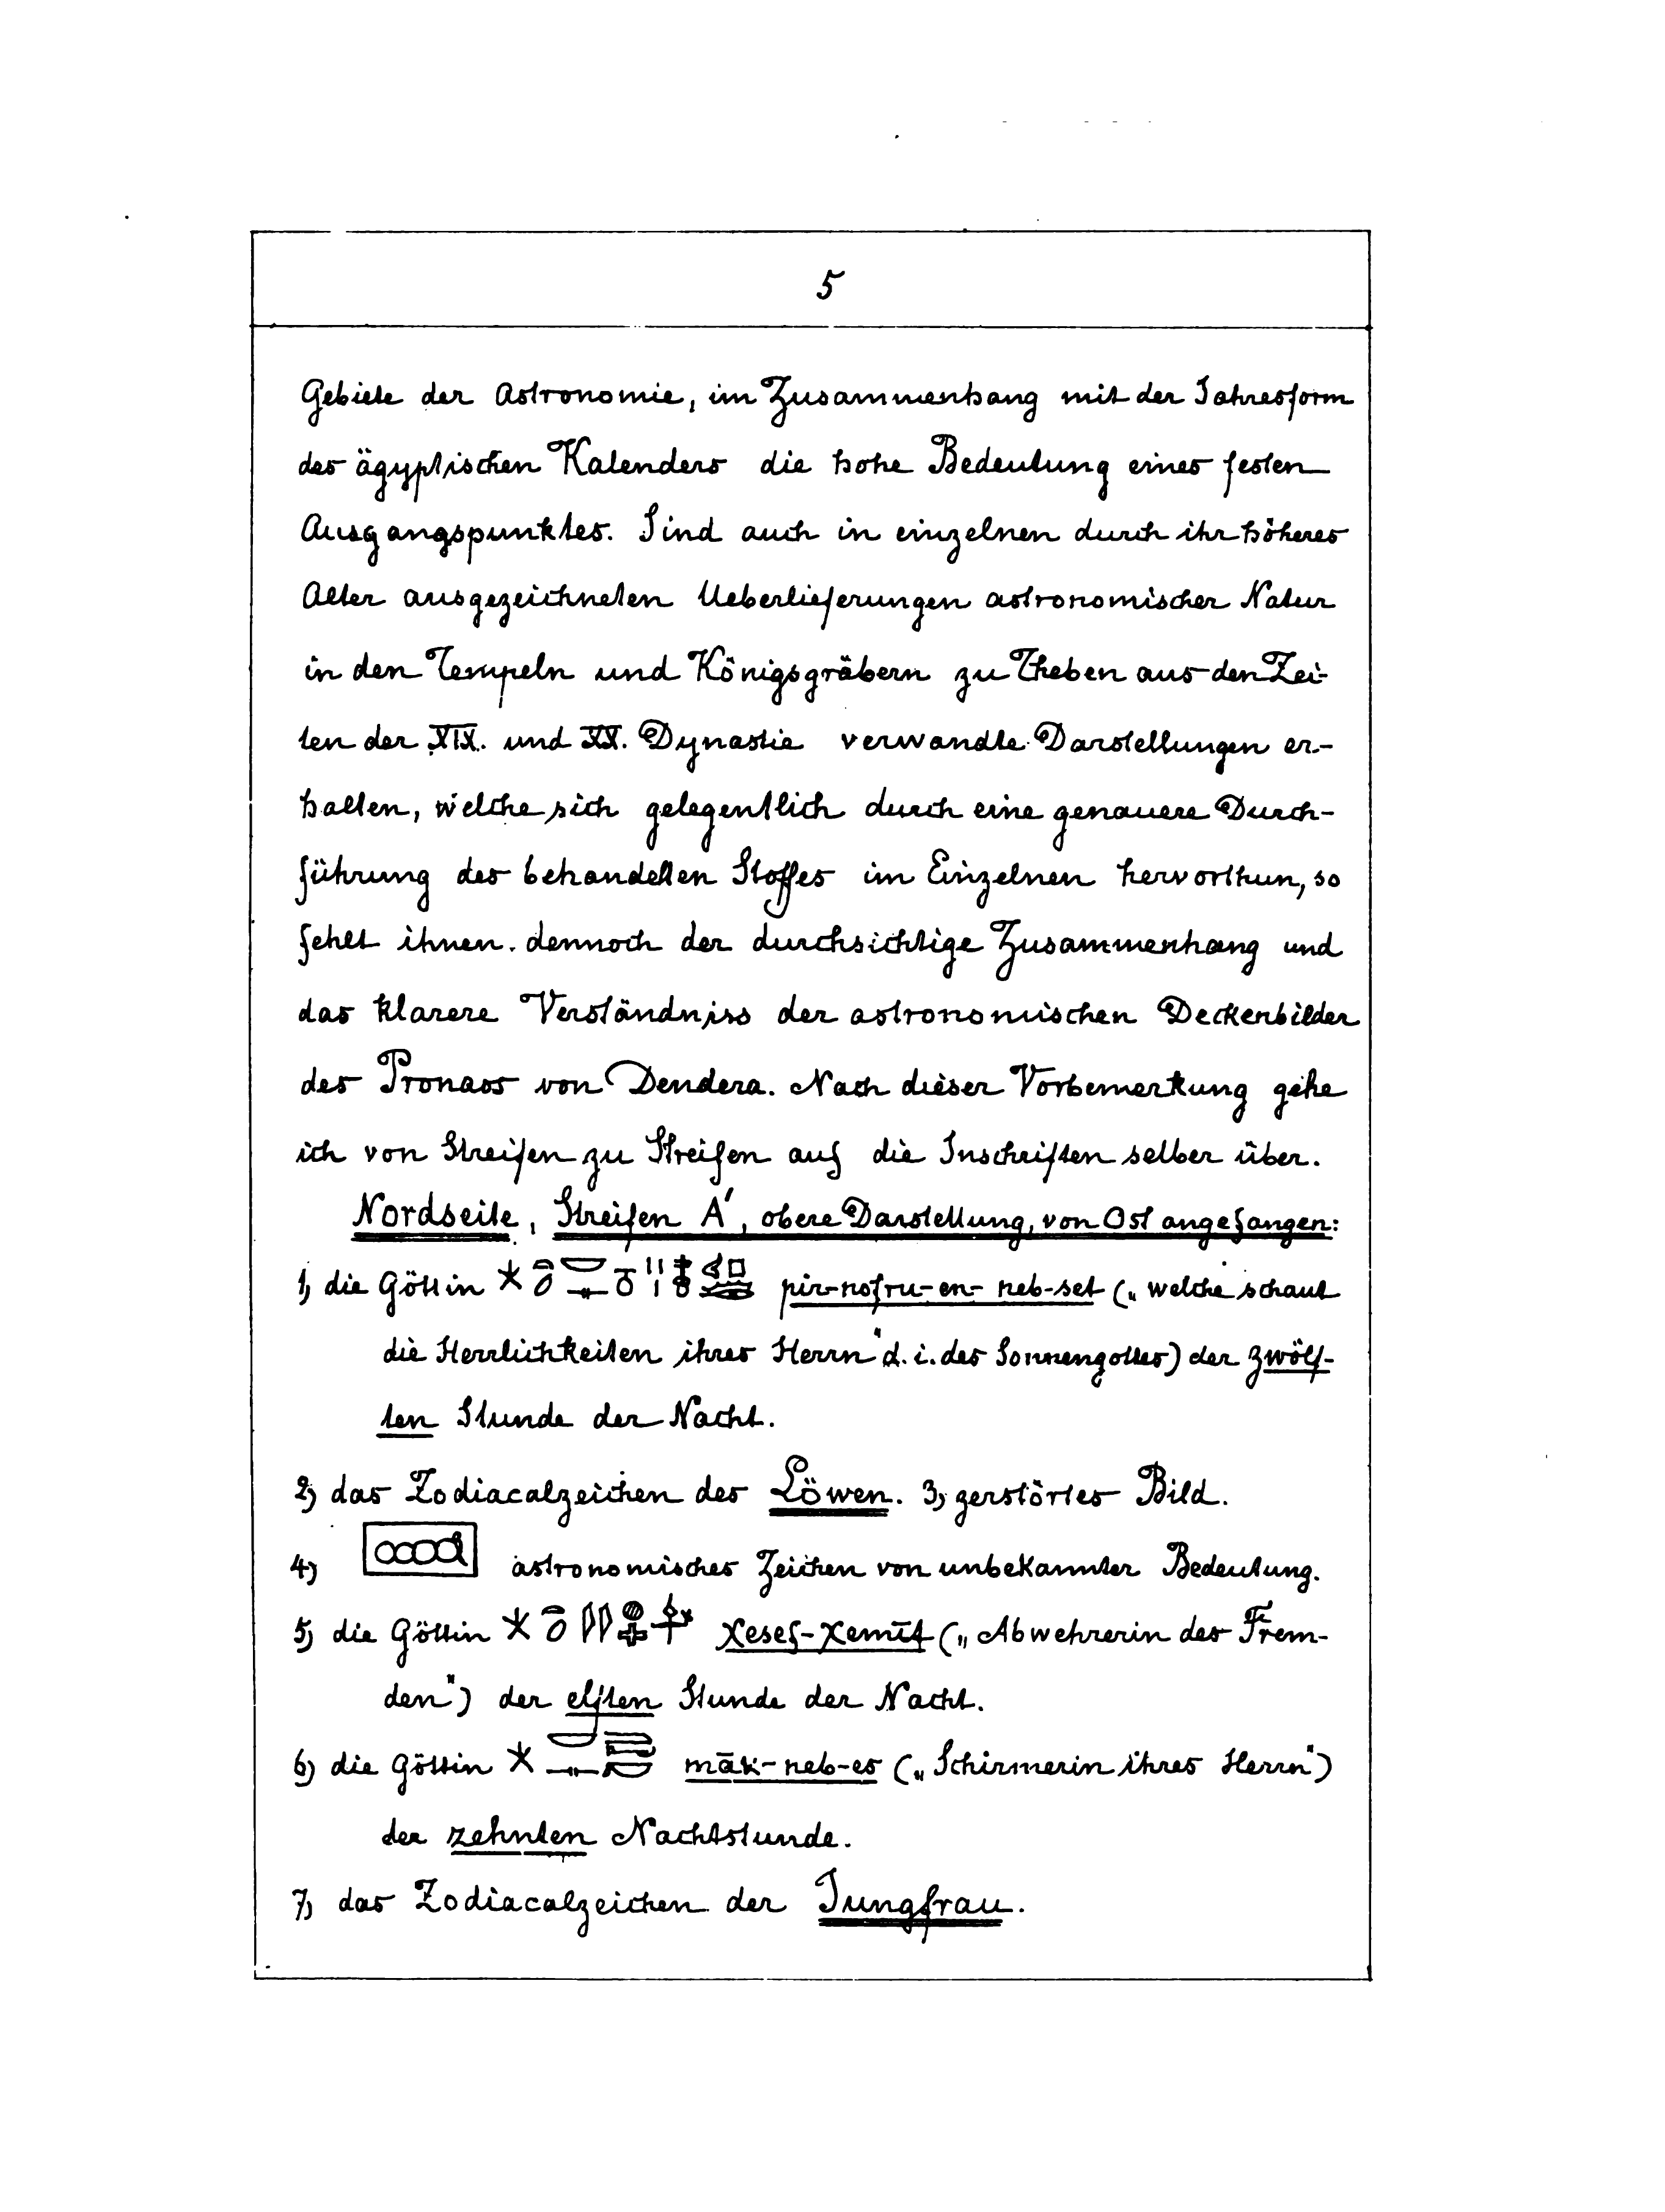 5
Gebiete der Astronomie, im Zusammenhang mit der Jahresform
des ägyptischen Kalenders die hohe Bedeutung eines festen
Ausgangspunktes. Sind auch in einzelnen durch ihr höheres
Alter ausgezeichneten Ueberlieferungen astronomischer Natur
in den Tempeln und Königsgräbern zu Theben aus den Zei-
ten der XIX. und XX. Dynastie verwandte Darstellungen er-
halten, welche sich gelegentlich durch eine genauere Durch-
führung des behandelten Stoffes im Einzelnen hervorthun, so
fehlt ihnen dennoch der durchsichtige Zusammenhang und
das klarere Verständniss der astronomischen Deckenbilder
des Pronaos von Dendera. Nach dieser Vorbemerkung gehe
ich von Streifen zu Streifen auf die Inschriften selber über.
Nordseite, Streifen A', obere Darstellung, von Ost angefangen:
1, die Göttin pir-nofru-en-neb-set („welche schaut
die Herrlichkeiten ihres Herrn" d. i. des Sonnengottes) der zwölf-
ten Stunde der Nacht.
2, das Zodiacalzeichen des Löwen. 3, zerstörtes Bild.
4, astronomisches Zeichen von unbekannter Bedeutung.
5, die Göttin χesef-χemīt („Abwehrerin des Frem-
den") der elften Stunde der Nacht.
6, die Göttin māk-neb-es („Schirmerin ihres Herrn")
der zehnten Nachtstunde.
7, das Zodiacalzeichen der Jungfrau.